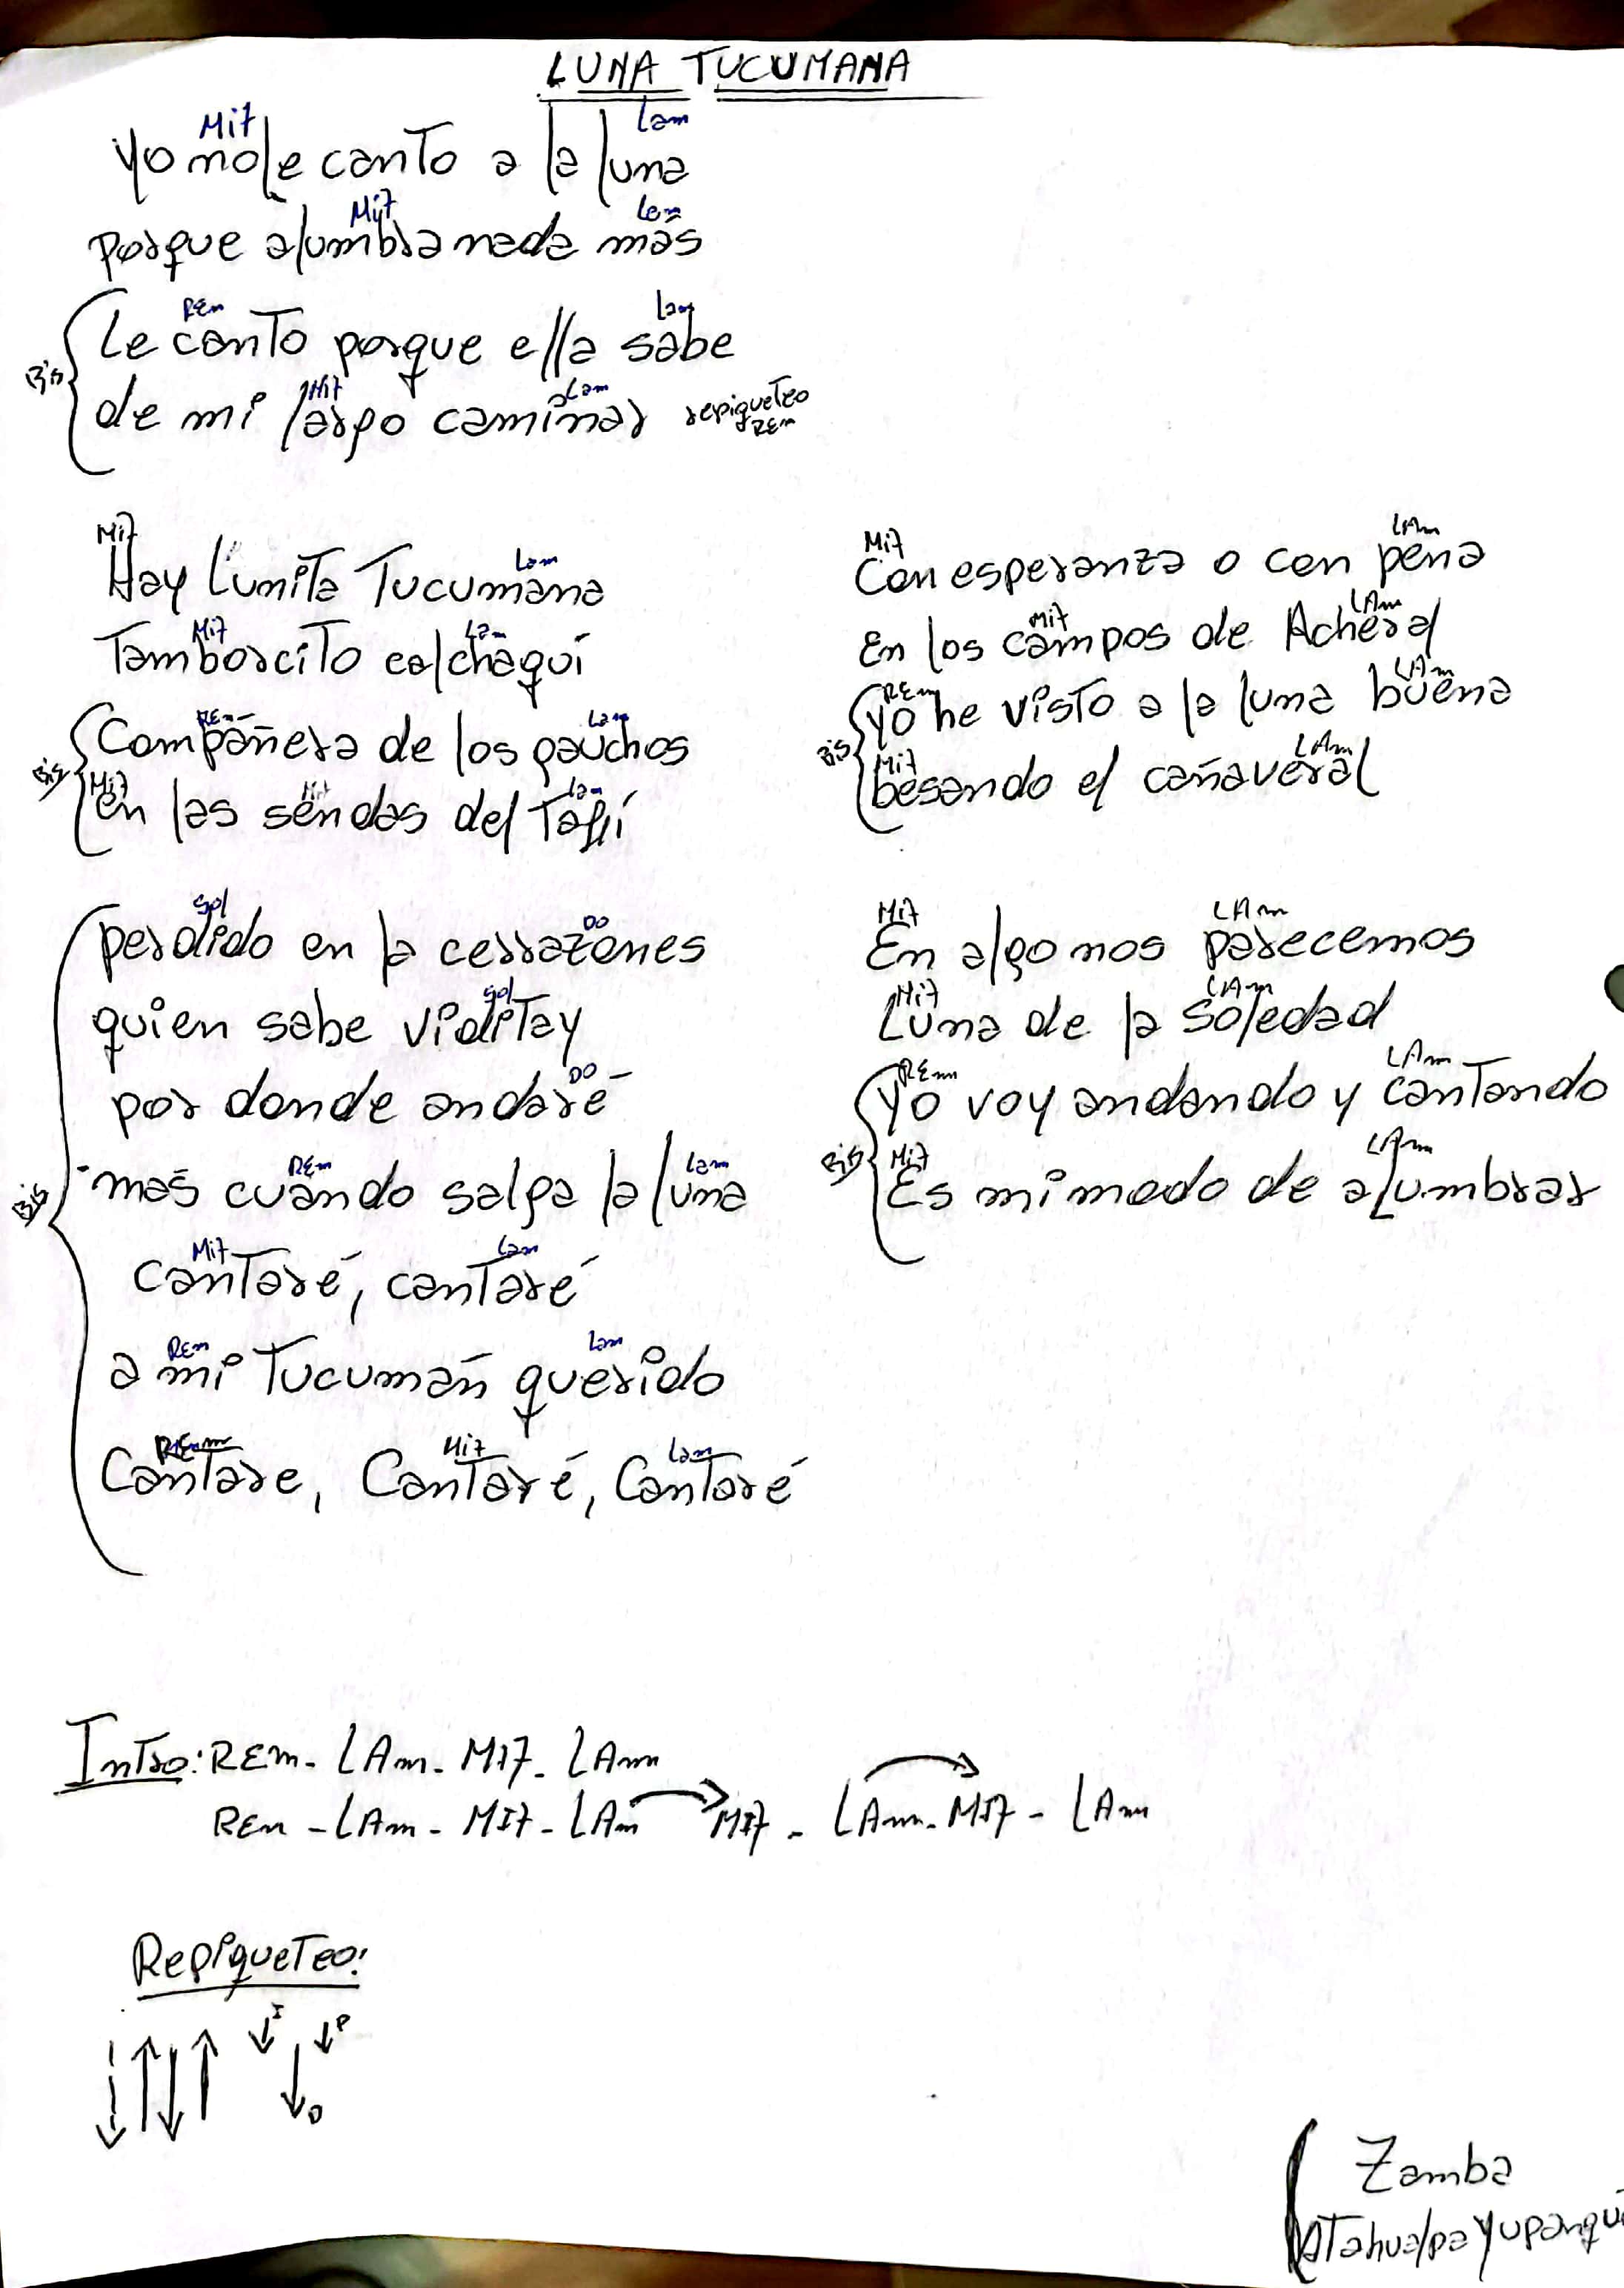 LUNA TUCUMANA
Mi7 Lam
Yo no le canto a la luna
Mi7 Lam
porque alumbra nada más
REm Lam
Bis Le canto porque ella sabe
Mi7 Lam
de mi largo caminar repiqueteo
REm
Mi7 Lam
Hay Lunita Tucumana
Mi7 Lam
Tamborcito calchaquí
REm Lam
Bis Compañera de los gauchos
Mi7 Mi7 Lam
en las sendas del Tafí
Sol DO
perdido en la cerrazones
Sol
quien sabe viditay
DO
por donde andaré
REm Lam
Bis mas cuándo salga la luna
Mi7 Lam
cantaré, cantaré
REm Lam
a mi Tucumán querido
REm Mi7 Lam
Cantare, Cantaré, Cantaré
Mi7 LAm
Con esperanza o con pena
Mi7 LAm
En los campos de Acheral
REm LAm
Bis yo he visto a la luna buena
Mi7 LAm
besando el cañaveral
Mi7 LAm
En algo nos parecemos
Mi7 LAm
Luna de la soledad
REm LAm
Bis Yo voy andando y cantando
Mi7 LAm
Es mi modo de alumbrar
Intro: REm - LAm - MI7 - LAm
REm - LAm - MI7 - LAm MI7 - LAm - MI7 - LAm
Repiqueteo:
I P
D
Zamba
Atahualpa Yupanqui